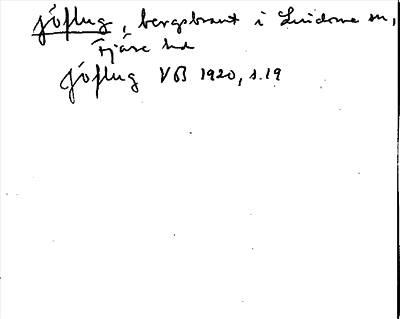 jöflug, bergsbrant i Lindome sn,
Fjäre hd
jöflug VB 1920, s.19